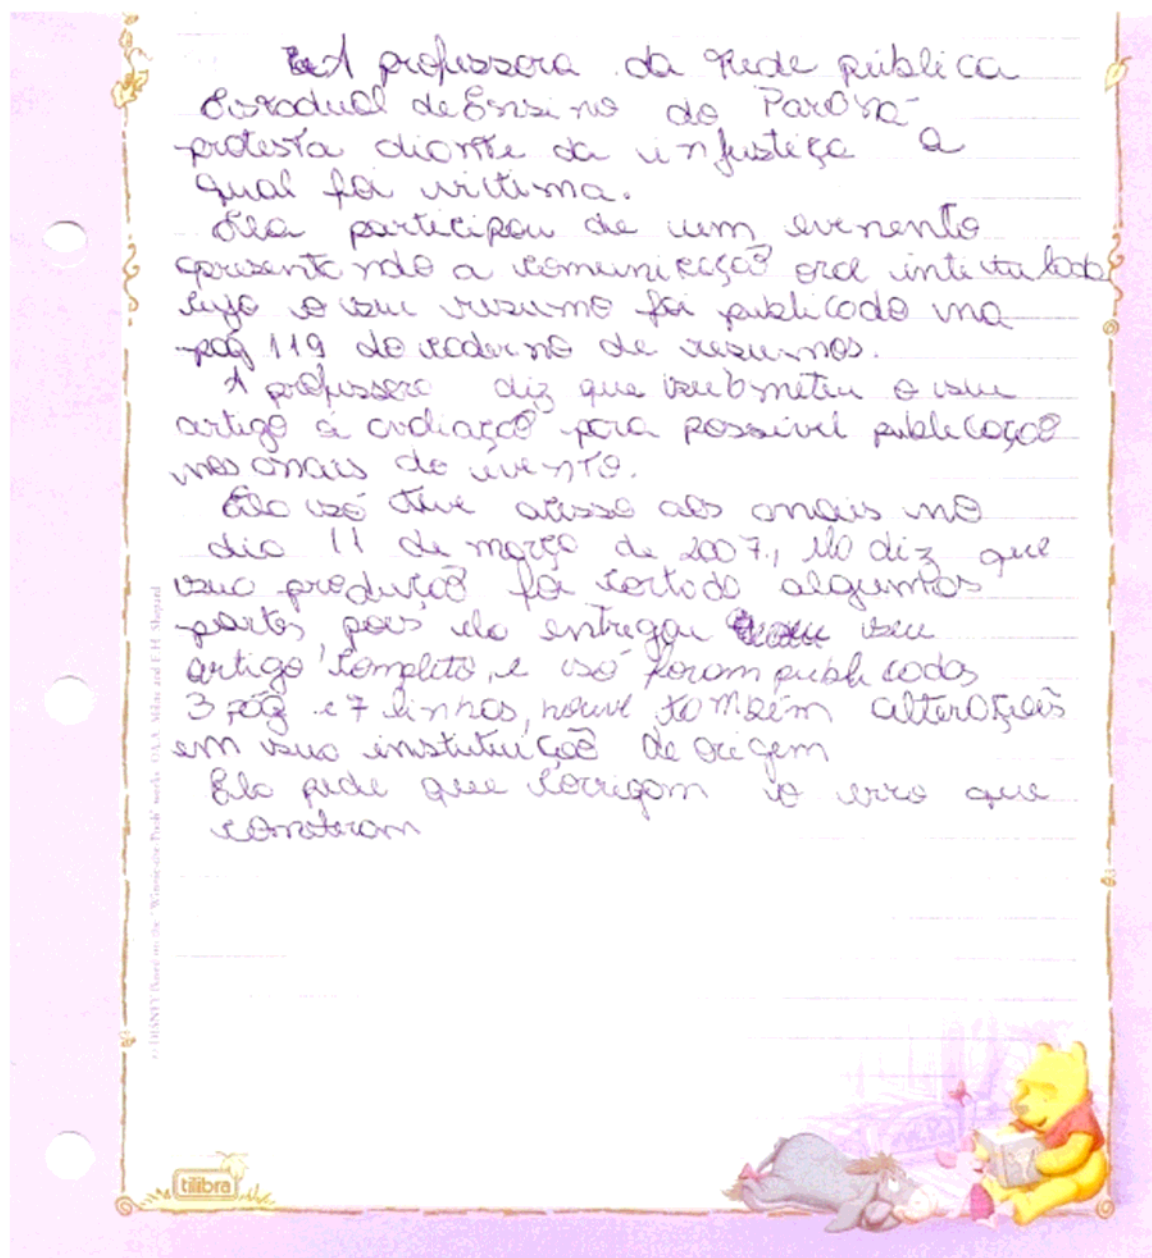 A professora da rede pública
Estadual de Ensino do Paraná
protesta diante da injustiça a
qual foi vitima.
Ela participou de um evenento
apresentando a comunicação oral intitulada
cujo o seu resumo foi publicado na
pág 119 do caderno de resumos.
A professora diz que submeteu o seu
artigo à avaliação para possivel publicação
nos anais do evento.
Ela só teve acesso aos anais no
dia 11 de março de 2007., ela diz que
sua produção foi cortada algumas
partes, pois ela entregou seu
artigo completo, e só foram publicados
3 pág e 7 linhas, houve também alterações
em sua instituição de origem
Ela pede que corrigam o erro que
cometeram
© DISNEY Based on the "Winnie the Pooh" works ©A.A. Milne and E.H. Shepard
tilibra